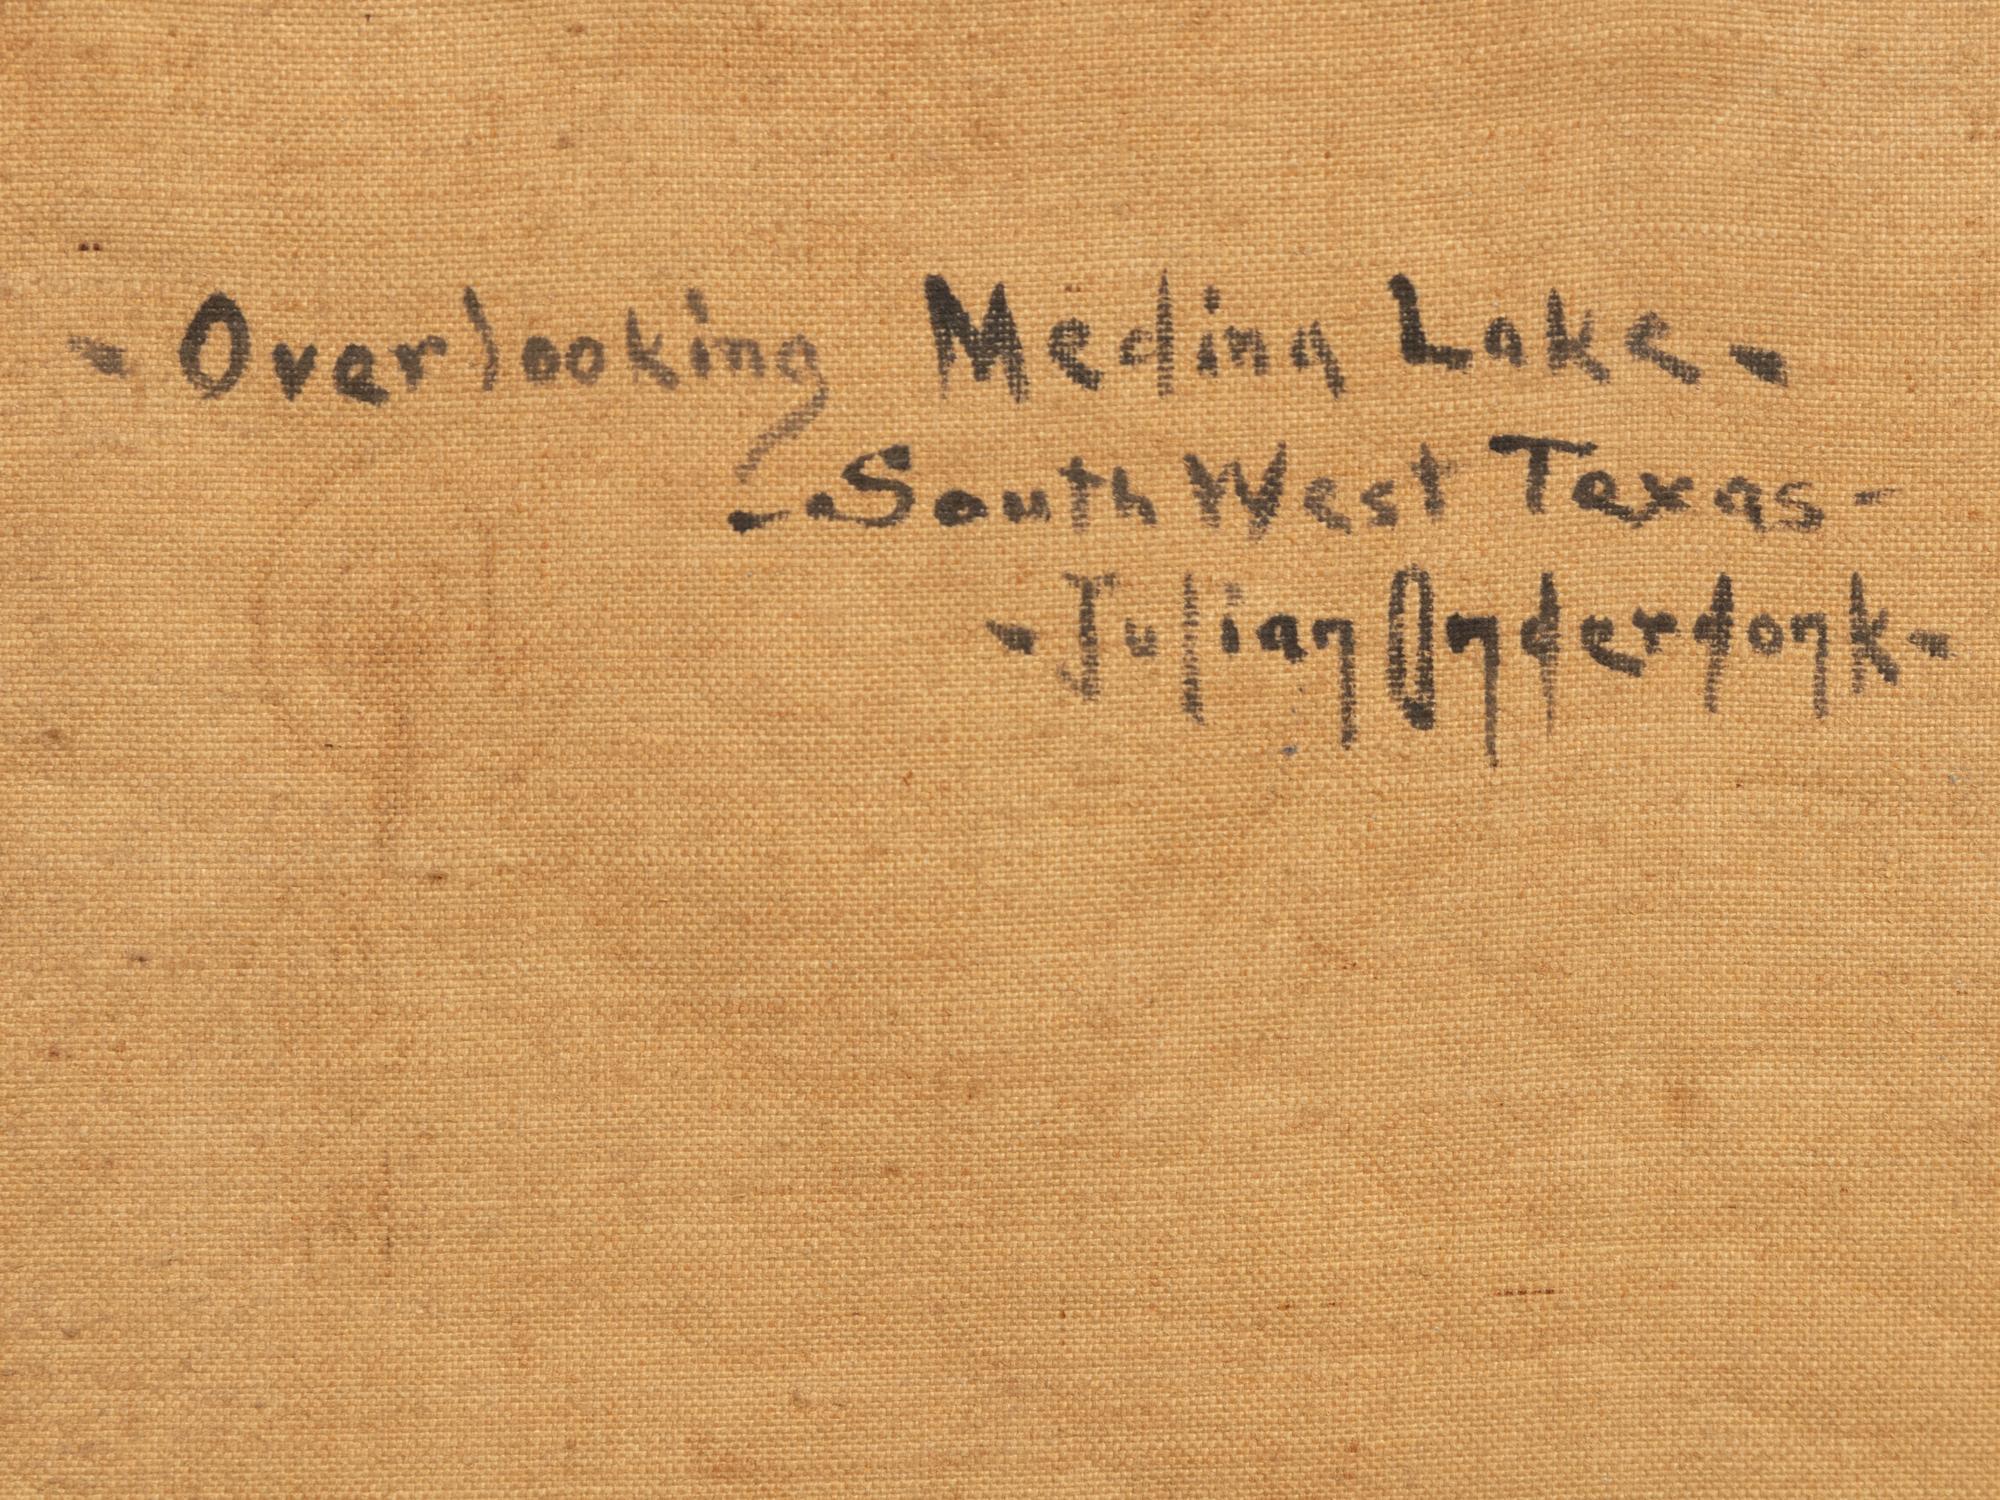 - Overlooking Medina Lake -
- South West Texas -
- Julian Onderdonk -